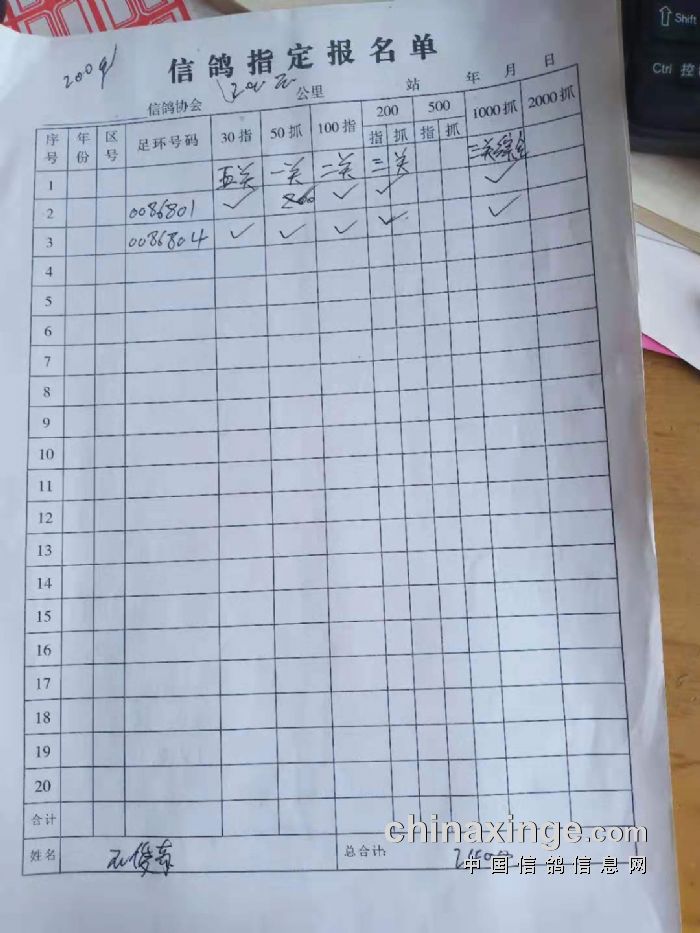 信鸽指定报名单
信鸽协会 公里 站 年 月 日
序号 年份 区号 足环号码 30指 50抓 100指 200 500 1000抓 2000抓
指 抓 指 抓
1 五关 一关 二关 三关 三关综合
2 0086801 ✓ ✓ ✓ ✓
3 0086804 ✓ ✓ ✓ ✓ ✓
4
5
6
7
8
9
10
11
12
13
14
15
16
17
18
19
20
合计
姓名 总合计:
chinaxinge.com
中国信鸽信息网
Shift
Ctrl 控